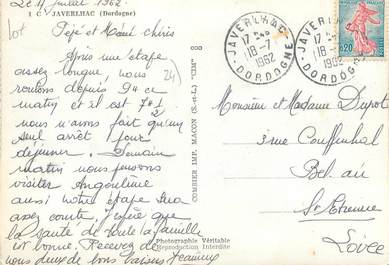 Le 17 juillet 1962
1 C V JAVERLHAC (Dordogne)
lot
Pépé et Mémé chéris
Après une étape
assez longue, nous
24
roulons depuis 9h ce
matin et il est
nous n'avons fait qu'un
seul arrêt pour
déjeuner. Demain
matin nous pensons
visiter Angoulême
aussi notre étape sera
assez courte, j'espère que
la santé de toute la famille
est bonne. Recevez de
nous deux de bons baisers
COMBIER IMP. MACON (S.-et-L.) "CIM"
Photographie Véritable
Reproduction Interdite
JAVERLHAC
18-7
1962
DORDOGNE
JAVERLHAC
18-7
1962
DORDOGNE
0,20
Monsieur et Madame Dupot
3 rue
Bel air
St Etienne
Loire